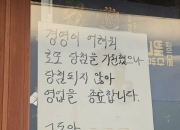 경영이 어려워
로또 당첨을 기원했으나
당첨되지 않아
영업을 종료합니다.
그동안